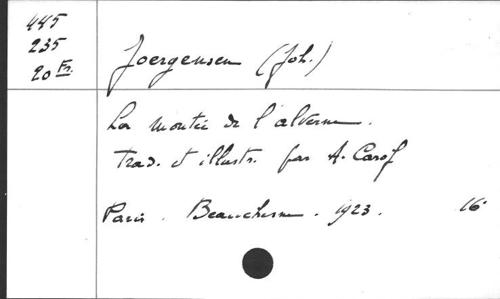 445
235
20 Fr.
Joergensen (Joh.)
La montée de l'alverne.
Trad. et illustr. par A. Carof
Paris. Beauchesne. 1923. 16°